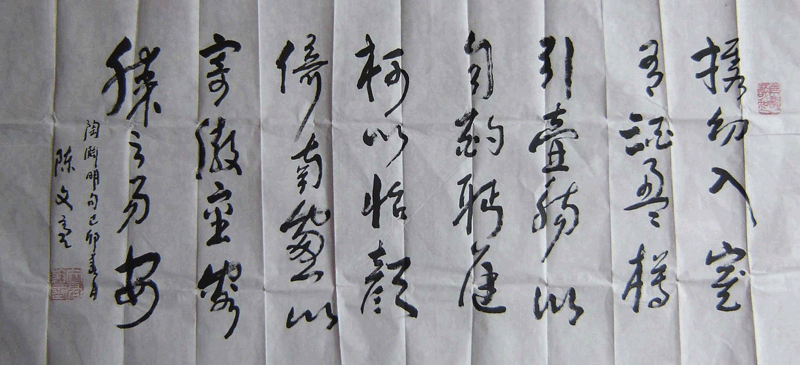 携幼入室
有酒盈樽
引壶觞以
自酌眄庭
柯以怡颜
倚南窗以
寄傲审容
膝之易安
陶渊明句己卯春月
陈文